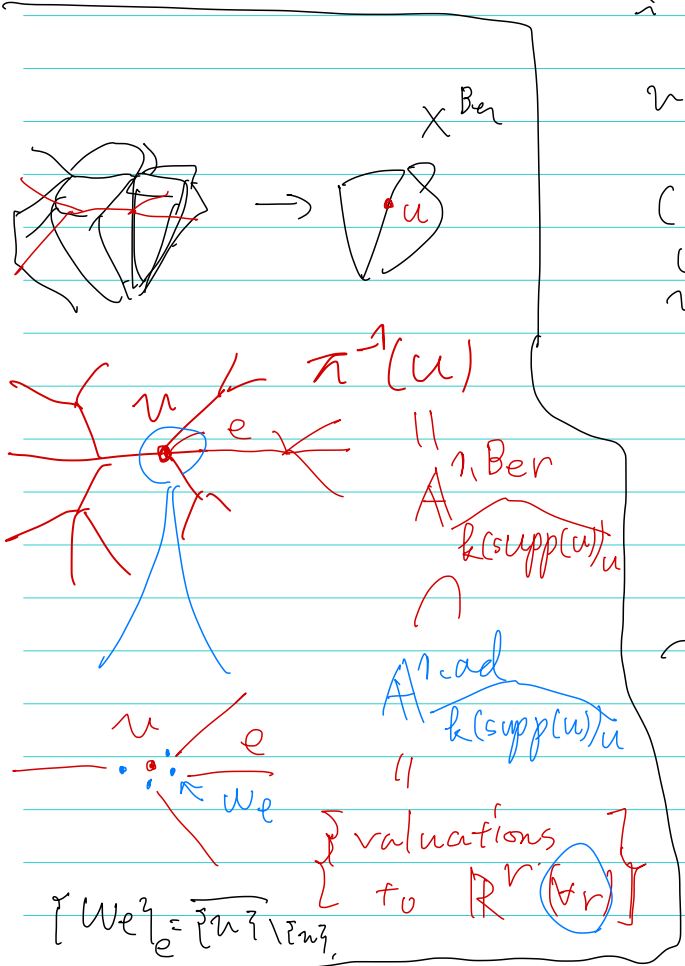 X^Ber
→ u
π^{-1}(u)
v
e
||
A^{1,Ber}
k(supp(u))_u
∩
A^{1,ad}
k(supp(u))_u
v
e
w_e
||
{ valuations
to ℝ^r (∀r) }
{w_e}_e = \overline{{v}} \ {v},